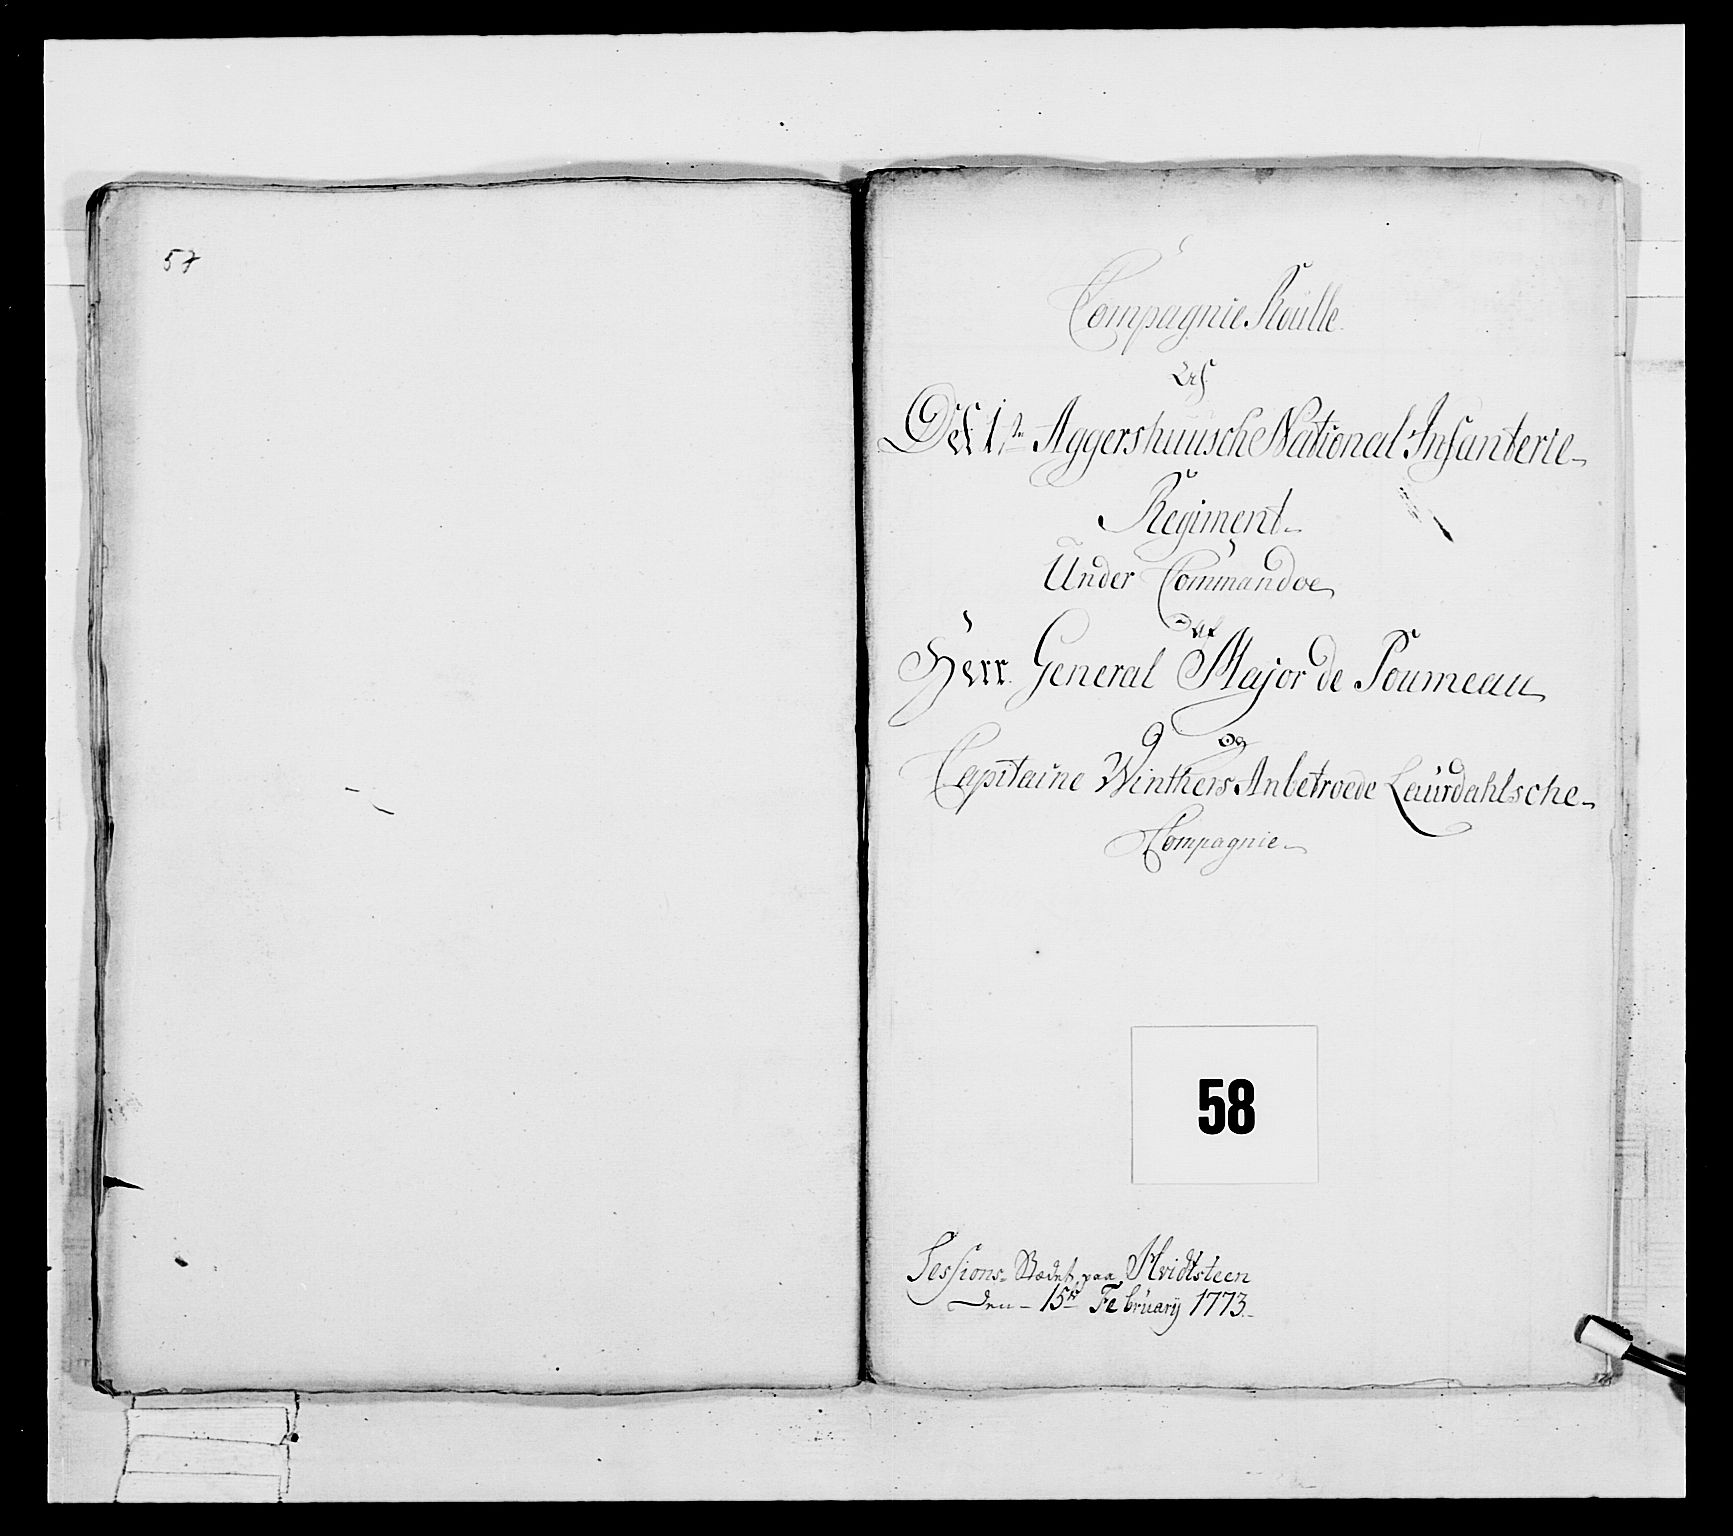 57
Compagnie Roulle
Ved
Det 1ste Aggershuusche National Infanterie
Regiment
Under Commandoe
af
Herr General Major de Poumeau
og
Capitaine Winthers Anbetroede Leurdahlsche
Compagnie
58
Sessions Stædet paa Hvidtsteen
Den 15de Februarij 1773